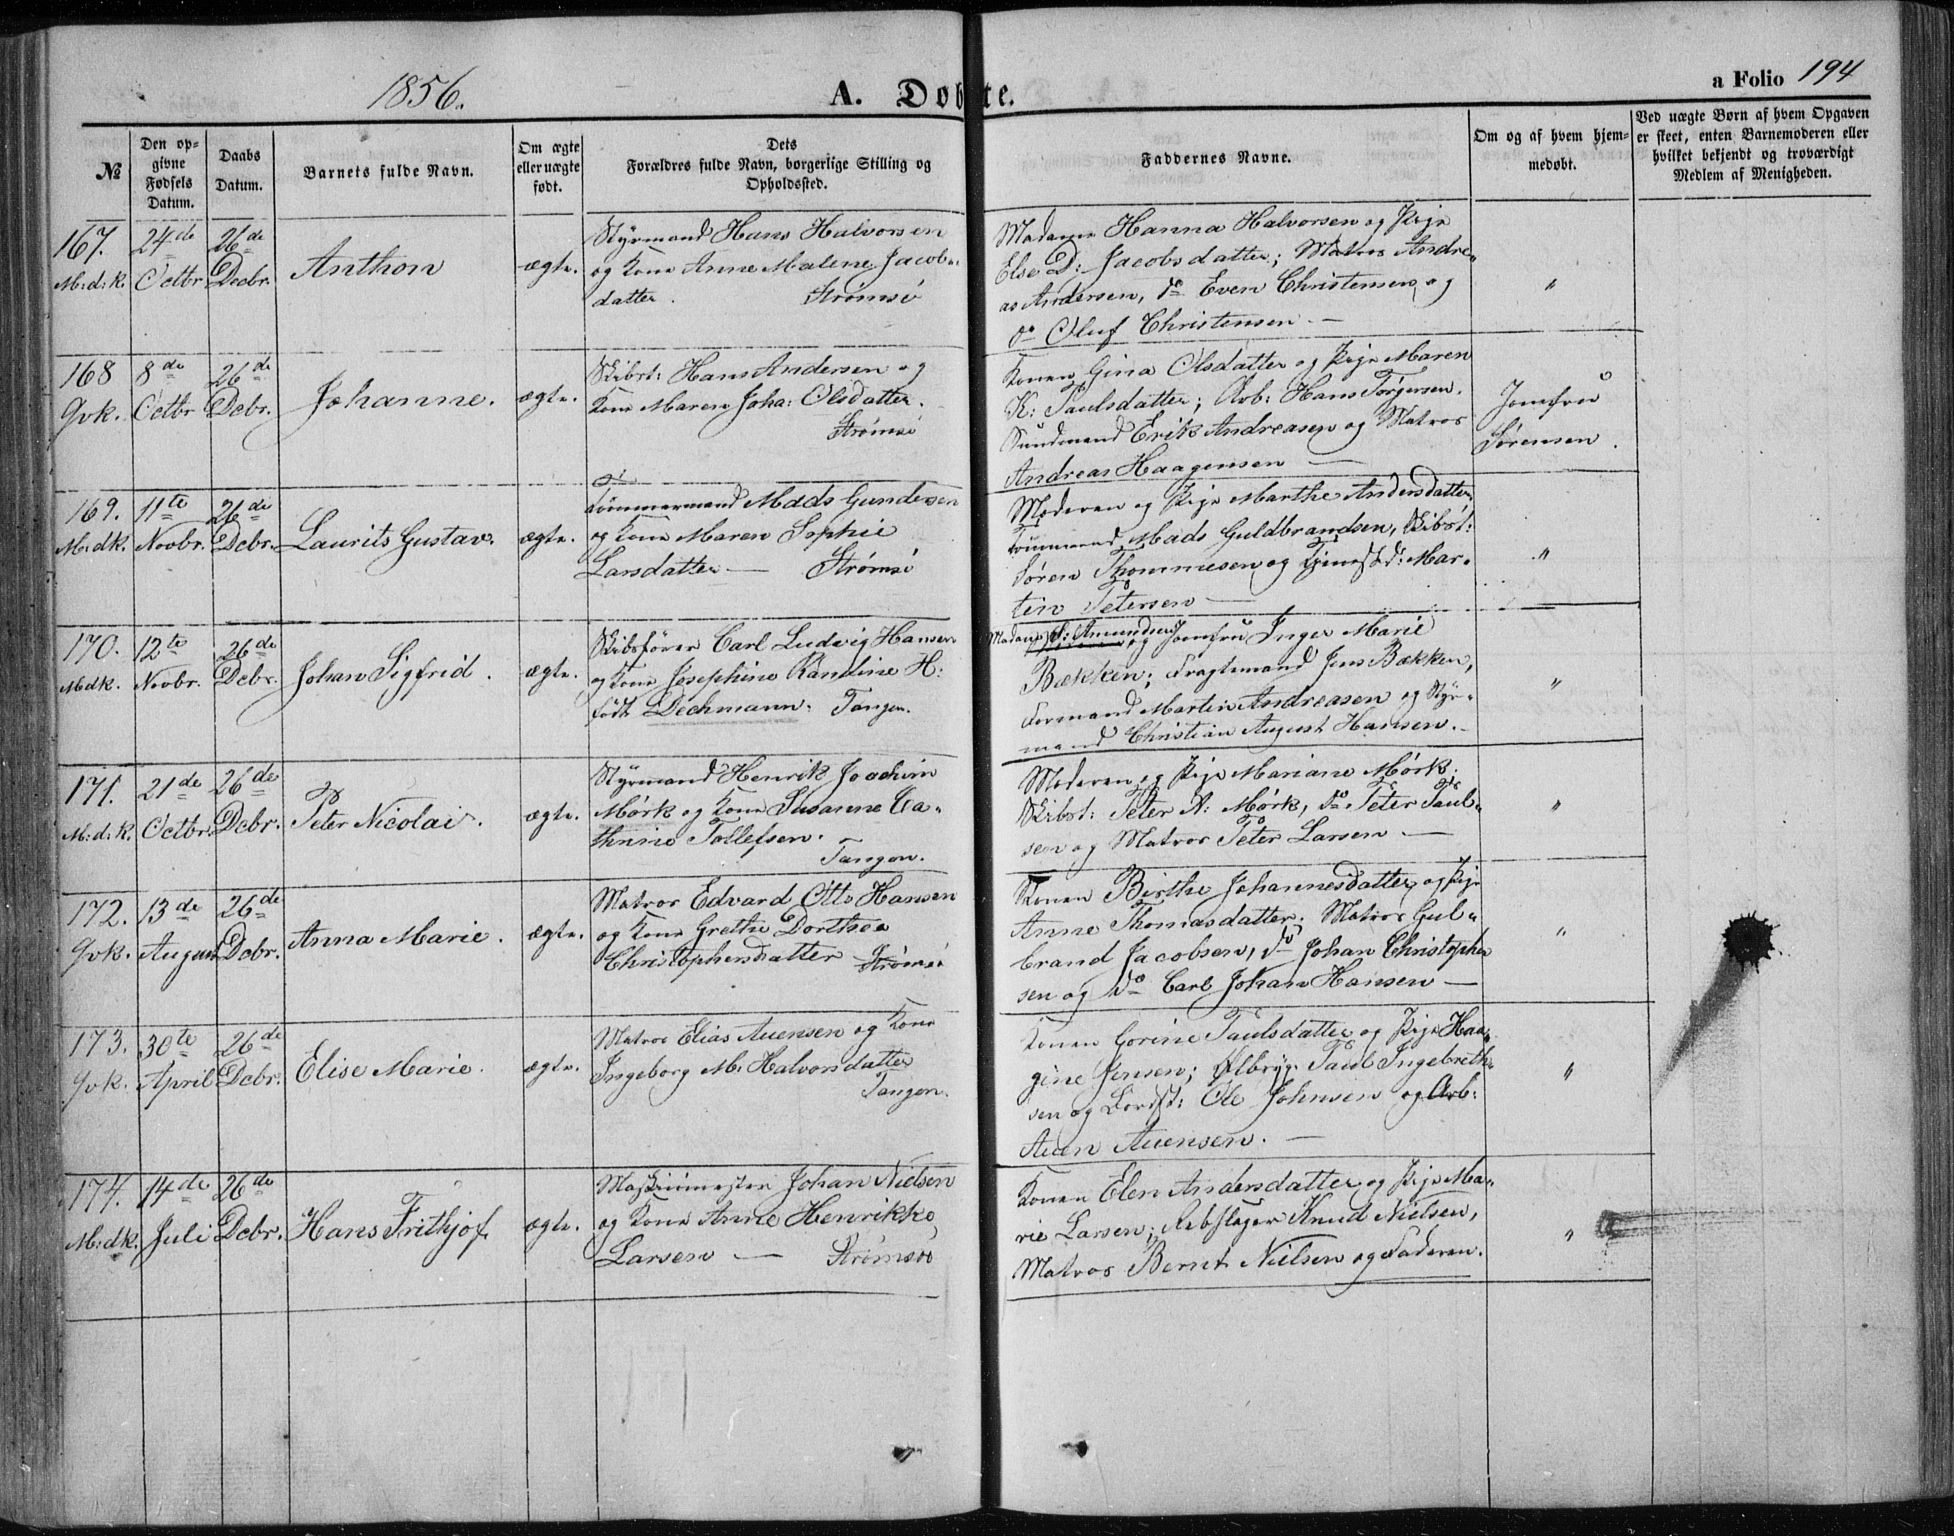 1856.
A. Døbte.
a Folio 194
№
Den op-
givne
Fødsels
Datum.
Daabs
Datum.
Barnets fulde Navn.
Om ægte
eller uægte
født.
Dets
Forældres fulde Navn, borgerlige Stilling og
Opholdssted.
Faddernes Navne.
Om og af hvem hjem-
medøbt.
Ved uægte Børn af hvem Opgaven
er skeet, enten Barnemoderen eller
hvilket bekjendt og troværdigt
Medlem af Menigheden.
167.
M:d:k.
24de
Octbr.
26de
Decbr.
Anthon
ægte.
Styrmand Hans Halvorsen
og Kone Anne Malene Jacobs-
datter. Strømsö
Madame Hanna Halvorsen og Pige
Else D: Jacobsdatter; Matros Andre-
as Andersen, do Even Christensen, og
do Oluf Christensen. —
"
168
Qvk.
8de
Octbr
26de
Dcbr.
Johanne.
ægte.
Skibst: Hans Andersen og
Kone Maren Joha: Olsdatter.
Strømsö
Konen Gina Olsdatter og Pige Maren
K: Paulsdatter; Arb: Hans Torgersen.
Sundmand Erik Andreasen og Matros
Andreas Haagensen —
Jomfru
Sørensen.
169.
M:dk.
11te
Novbr.
26de
Dcbr.
Laurits Gustav.
ægte.
Tömmermand Mads Gundersen
og Kone Maren Sophie
Larsdatter — Strømsö
Moderen og Pige Marthe Andersdatter,
Tömmermand Mads Guldbrandsen, Skibst:
Søren Thommesen og Tjenestd: Mar-
tin Petersen —
"
170.
Mdk.
12te
Novbr.
26de
Dcbr.
Johan Sigfrid.
ægte.
Skibsfører Carl Ludvig Hansen
og Kone Josephine Randine H:
født Dechmann. Tangen.
Madame Amundsen og Jomfru Inger Marie
Bækken; Fragtemand Jens Bækken,
Formand Martin Andreasen og Styr-
mand Christian August Hansen.-
"
171.
M:d:k.
21de
Octbr.
26de
Dcbr.
Peter Nicolai.
ægte.
Styrmand Henrik Joachim
Mørk og Kone Susanne Ca-
thrine Tollefsen. —
Tangen.
Moderen og Pige Mariane Mørk.
Skibst: Peter A: Mørk, do Peter Paul-
sen og Matros Peter Larsen —
"
172.
Qvk.
13de
August
26de
Dcbr.
Anna Marie.
ægte.
Matros Edvard Otto Hansen
og Kone Grethe Dorthea
Christophersdatter Strømsö
Konen Birthe Johannesdatter og Pige
Anne Thomasdatter; Matros Gul-
brand Jacobsen, do Johan Christopher
sen og do Carl Johan Hansen —
"
173.
Qvk.
30te
April
26de
Dcbr.
Elise Marie.
ægte.
Matros Elias Auensen og Kone
Ingeborg M. Halvorsdatter
Tangen.
Konen Gorine Paulsdatter og Pige Haa-
gine Jensen; Ølbryg. Paul Ingebreth-
sen og Lodst: Ole Johnsen og Arb:
Auen Auensen. —
"
174.
M:dk.
14de
Juli
26de
Dcbr.
Hans Frithjof.
ægte.
Maskinmester Johan Nielsen
og Kone Anne Henrikke
Larsen — Strømsöe
Konen Elen Andersdatter og Pige Ma-
rie Larsen; Rebslager Knud Nielsen,
Matros Bernt Nielsen og Faderen.
"